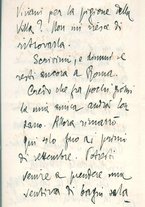 Viviani per la pigione della
villa? Non mi riesce di
ritrovarla.
Scrivimi, e dimmi se
resti ancora a Roma.
Credo che fra pochi giorni
la mia amica andrà lon
tano. Allora rimarrò
qui solo fino ai primi
di settembre. Potresti
venire a prendere una
sentina di bagni